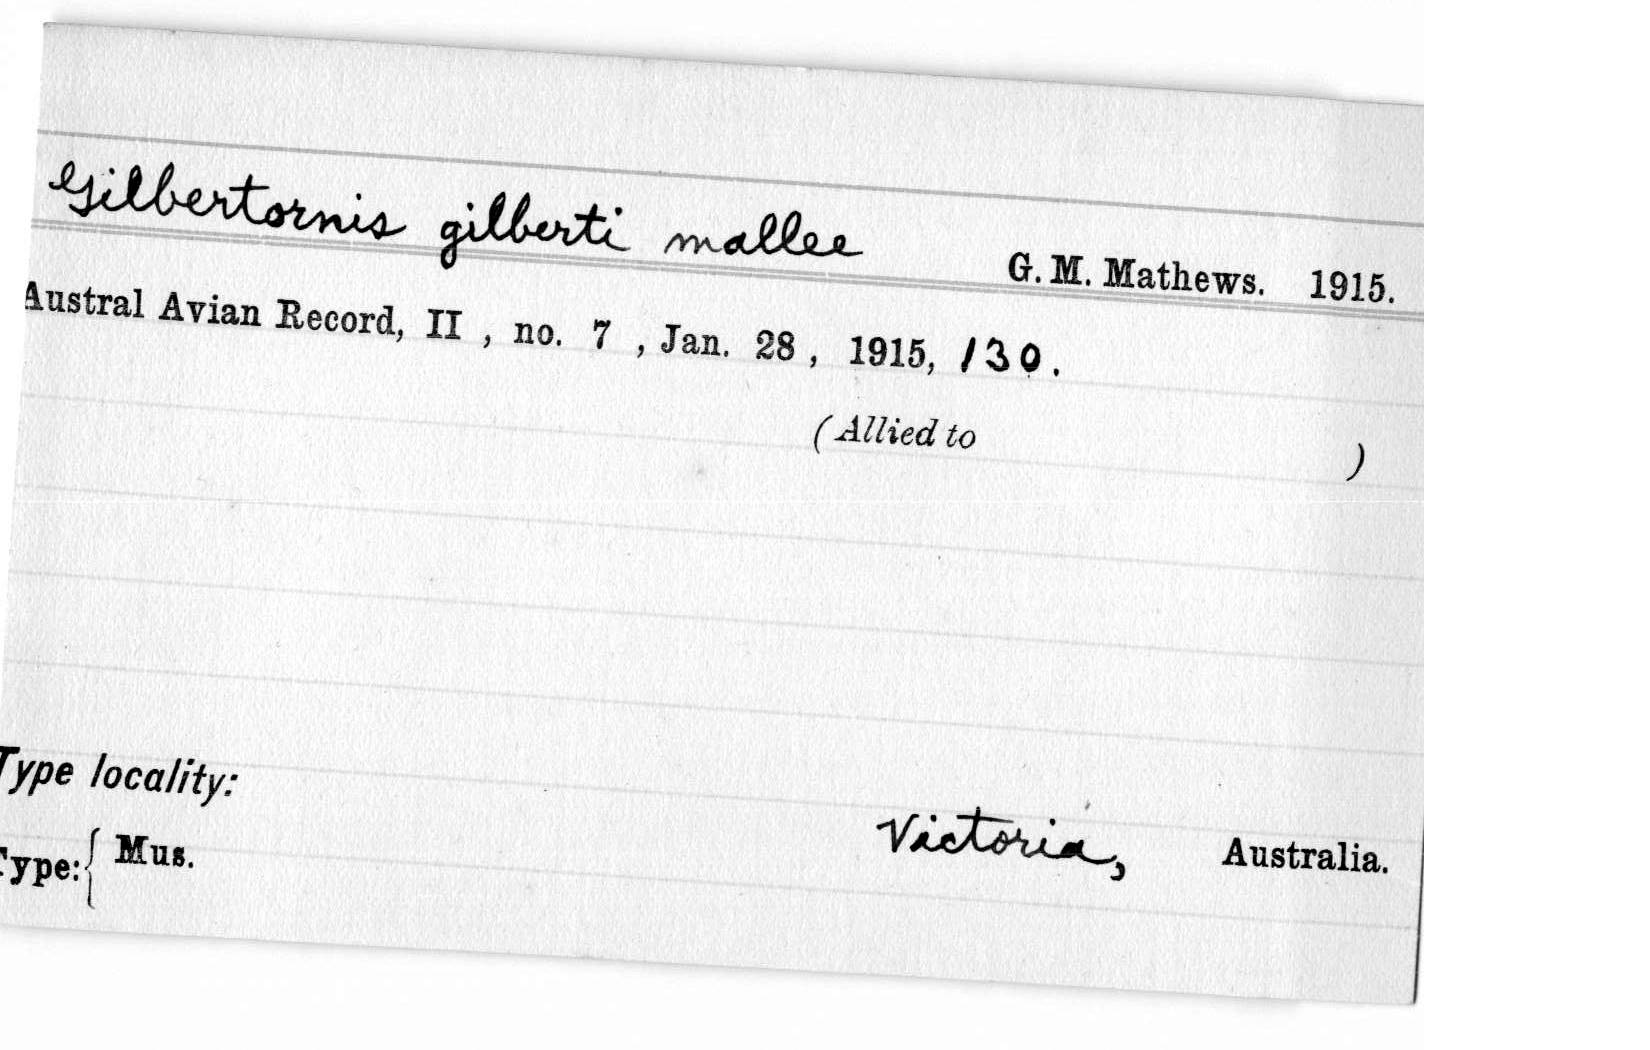 Gilbertornis gilberti mallee G. M. Mathews. 1915.
Austral Avian Record, II , no. 7 , Jan. 28 , 1915, 130.
( Allied to )
Type locality:
Victoria, Australia.
Type: { Mus.